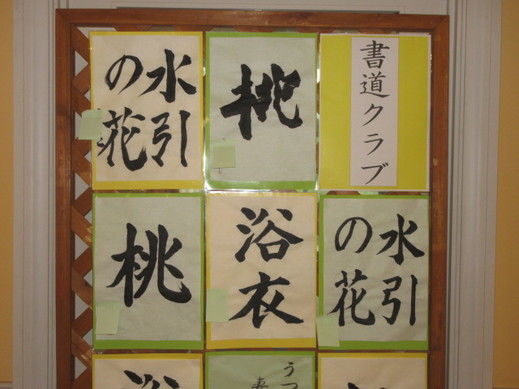 書道クラブ
桃
水引
の花
水引
の花
浴衣
桃
うつ